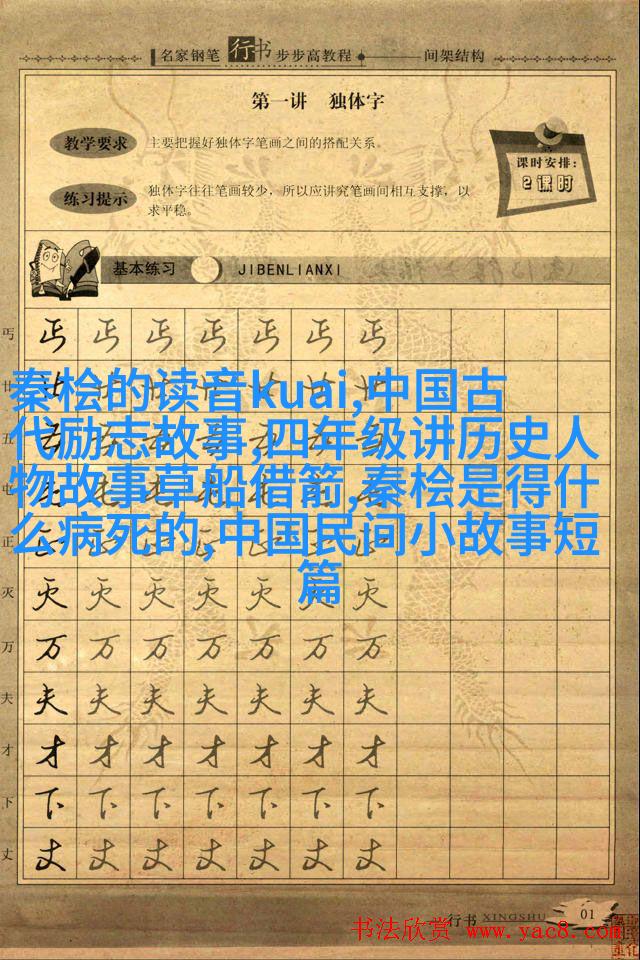 名家钢笔 行书 步步高教程 间架结构
第一讲 独体字
教学要求 主要把握好独体字笔画之间的搭配关系。
课时安排:
2课时
练习提示 独体字往往笔画较少，所以应讲究笔画间相互支撑，以
求平稳。
基本练习 JIBENLIANXI
丐 丐 丐 丐 丐 丐 丐 丐
秦桧的读音kuai,中国古
代励志故事,四年级讲历史人
物故事草船借箭,秦桧是得什
么病死的,中国民间小故事短
篇
廿
五
屯
正
灭 灭 灭 灭 灭 灭 灭 灭
万 万 万 万 万 万 万 万
夫 夫 夫 夫 夫 夫 夫 夫
才 才 才 才 才 才 才 才
下 下 下 下 下 下 下 下
丈 丈 丈 丈 丈 丈 丈 丈
行书 XINGSHU 01
书法欣赏 www.yac8.com